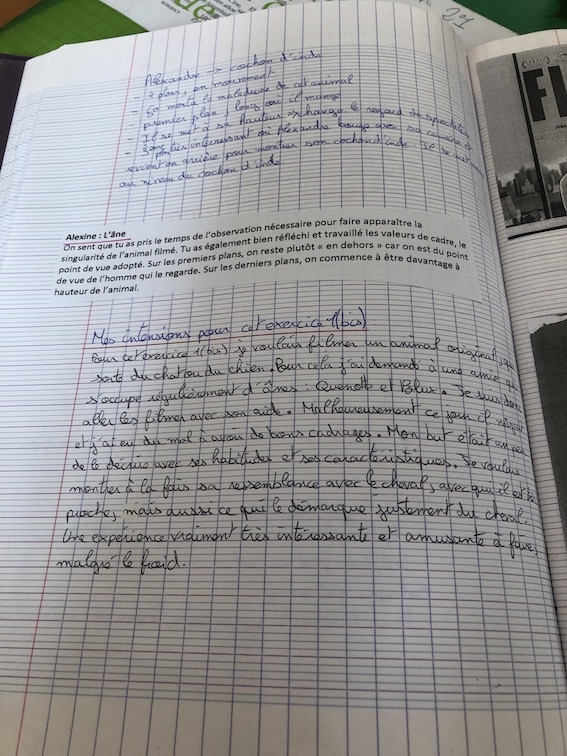 Alexandre -> cochon d'inde
- 4 plans, en mouvement
- ça montre la maladresse de cet animal
premier plan : long où il mange
- Il se met à sa hauteur => change le regard du spectateur
- 3ème plan très intéressant où Alexandre bouge avec sa caméra et
revient en arrière pour montrer son cochon d'inde. Il se met
au niveau du cochon d'inde
Alexine : L'âne
On sent que tu as pris le temps de l'observation nécessaire pour faire apparaître la
singularité de l'animal filmé. Tu as également bien réfléchi et travaillé les valeurs de cadre, le
point de vue adopté. Sur les premiers plans, on reste plutôt « en dehors » car on est du point
de vue de l'homme qui le regarde. Sur les derniers plans, on commence à être davantage à
hauteur de l'animal.
Mes intensions pour cet exercice 1(bis)
Pour cet exercice 1(bis) je voulais filmer un animal original, qui
sorte du chat ou du chien. Pour cela j'ai demandé à une amie qui
s'occupe régulièrement d'ânes : Quenotte et Polux. Je suis donc
allée les filmer avec son aide. Malheureusement ce jour il
et j'ai eu du mal à avoir de bons cadrages. Mon but était un peu
de le décrire avec ses habitudes et ses caractéristiques. Je voulais
montrer à la fois sa ressemblance avec le cheval, avec qui il est
proche, mais aussi ce qui le démarque justement du cheval.
Une expérience vraiment très intéressante et amusante à faire,
malgré le froid.
FL